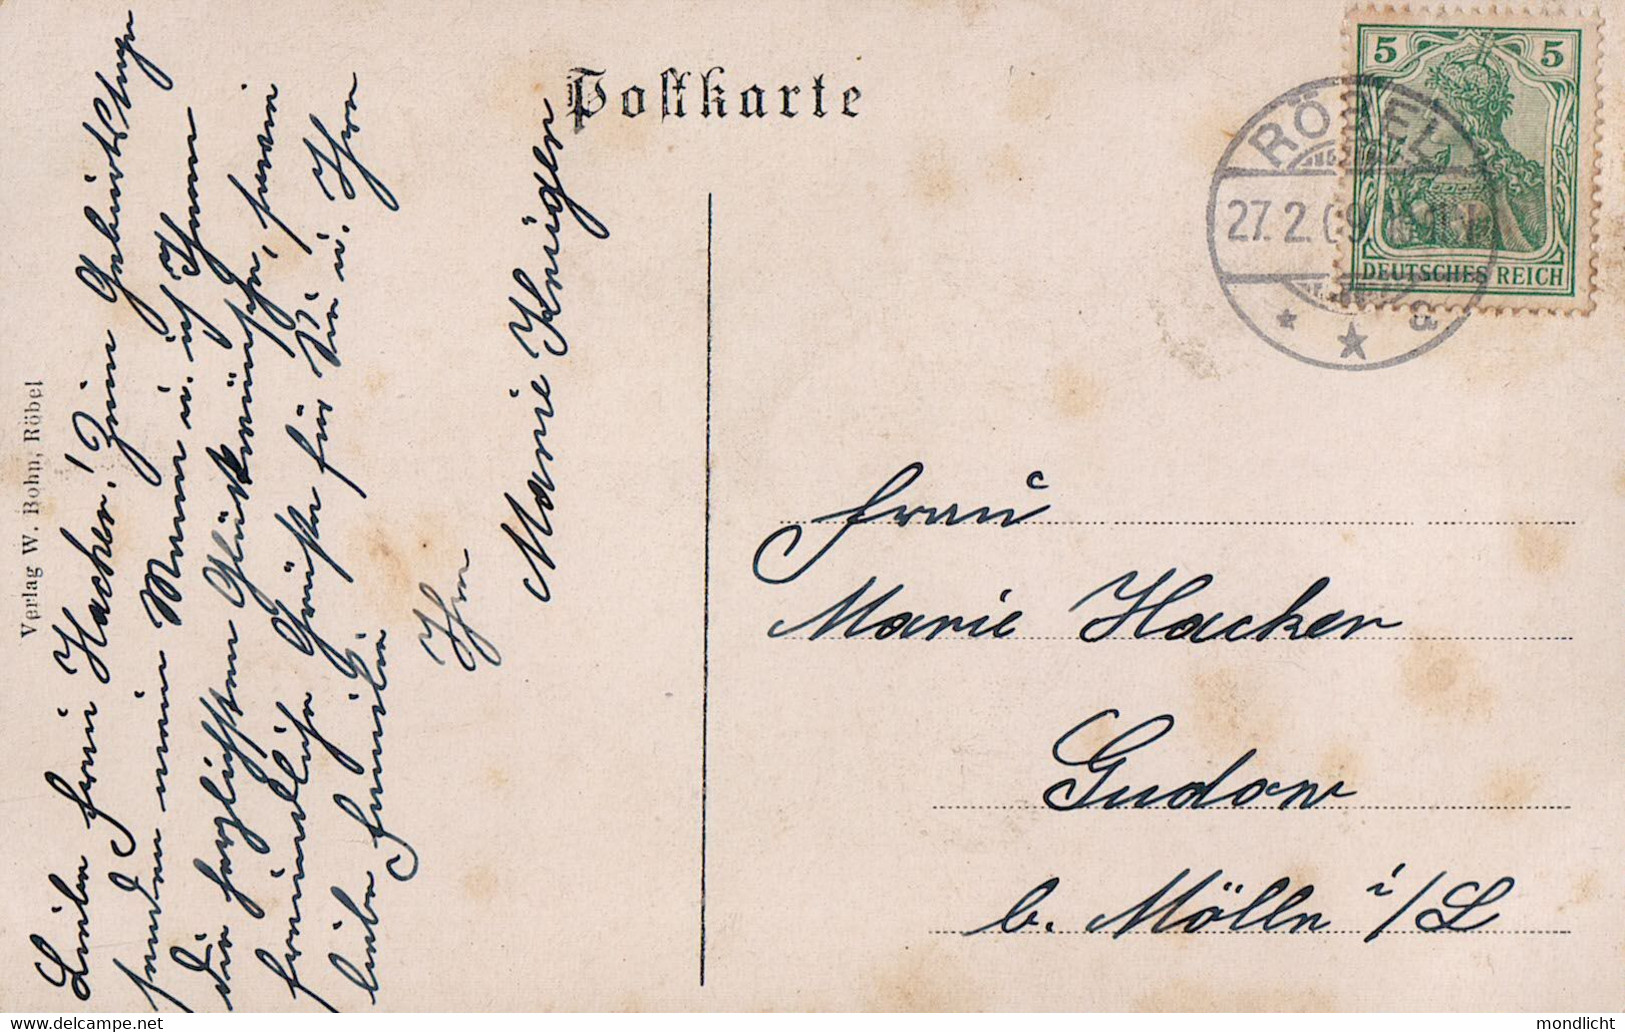 Postkarte
5 5
DEUTSCHES REICH
RÖBEL
27.2.09.
a
Verlag W. Bohn, Röbel
Liebe Frau Hacker! Zum Geburtstage
senden mein Mann u. ich Ihnen
die herzlichsten Glückwünsche, sowie
freundliche Grüße für Sie u. Ihre
liebe Familie
Ihre
Marie Krüger
Frau
Marie Hacker
Gudow
b. Mölln i/L
mondlicht